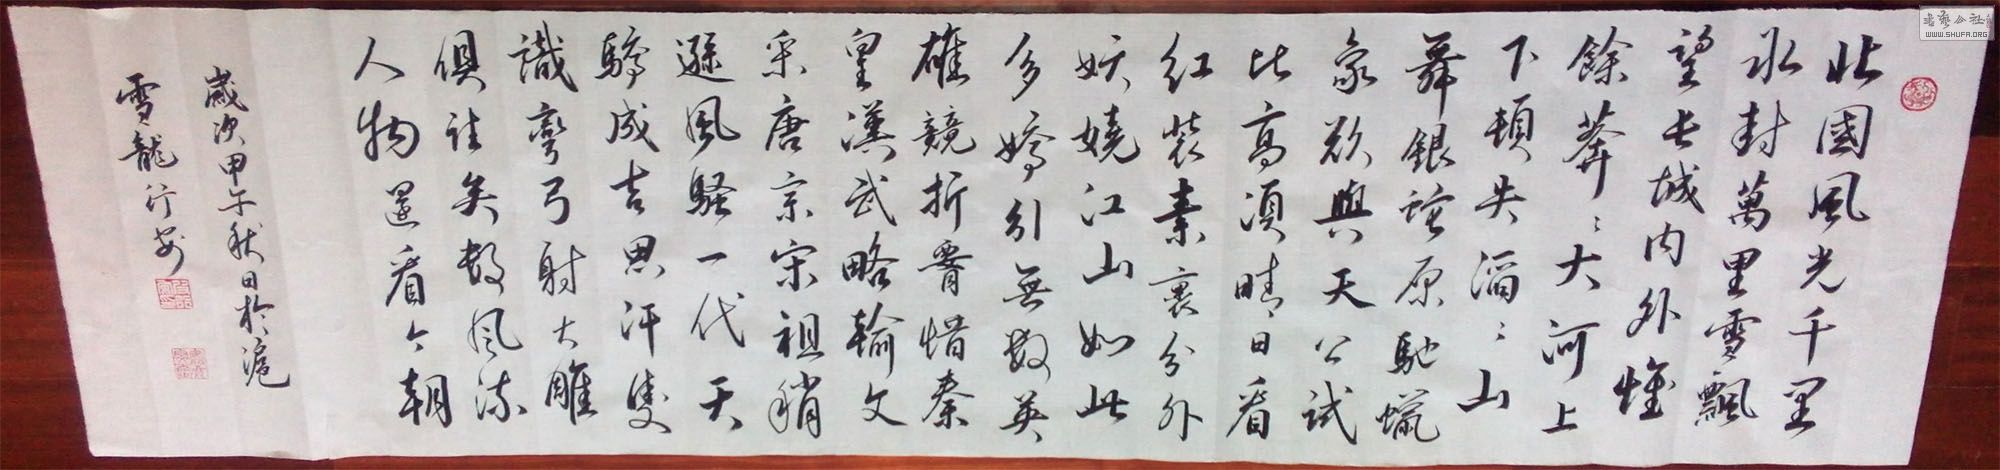 北國風光千里
冰封萬里雪飄
望長城内外惟
餘莽〻大河上
下頓失滔〻山
舞銀蛇原馳蠟
象欲與天公試
比高須晴日看
紅裝素裹分外
妖嬈江山如此
多嬌引無數英
雄競折腰惜秦
皇漢武略輸文
采唐宗宋祖稍
遜風騷一代天
驕成吉思汗隻
識彎弓射大雕
俱往矣數風流
人物還看今朝
歲次甲午秋日於滬
雪龍行
WWW.SHUFA.ORG